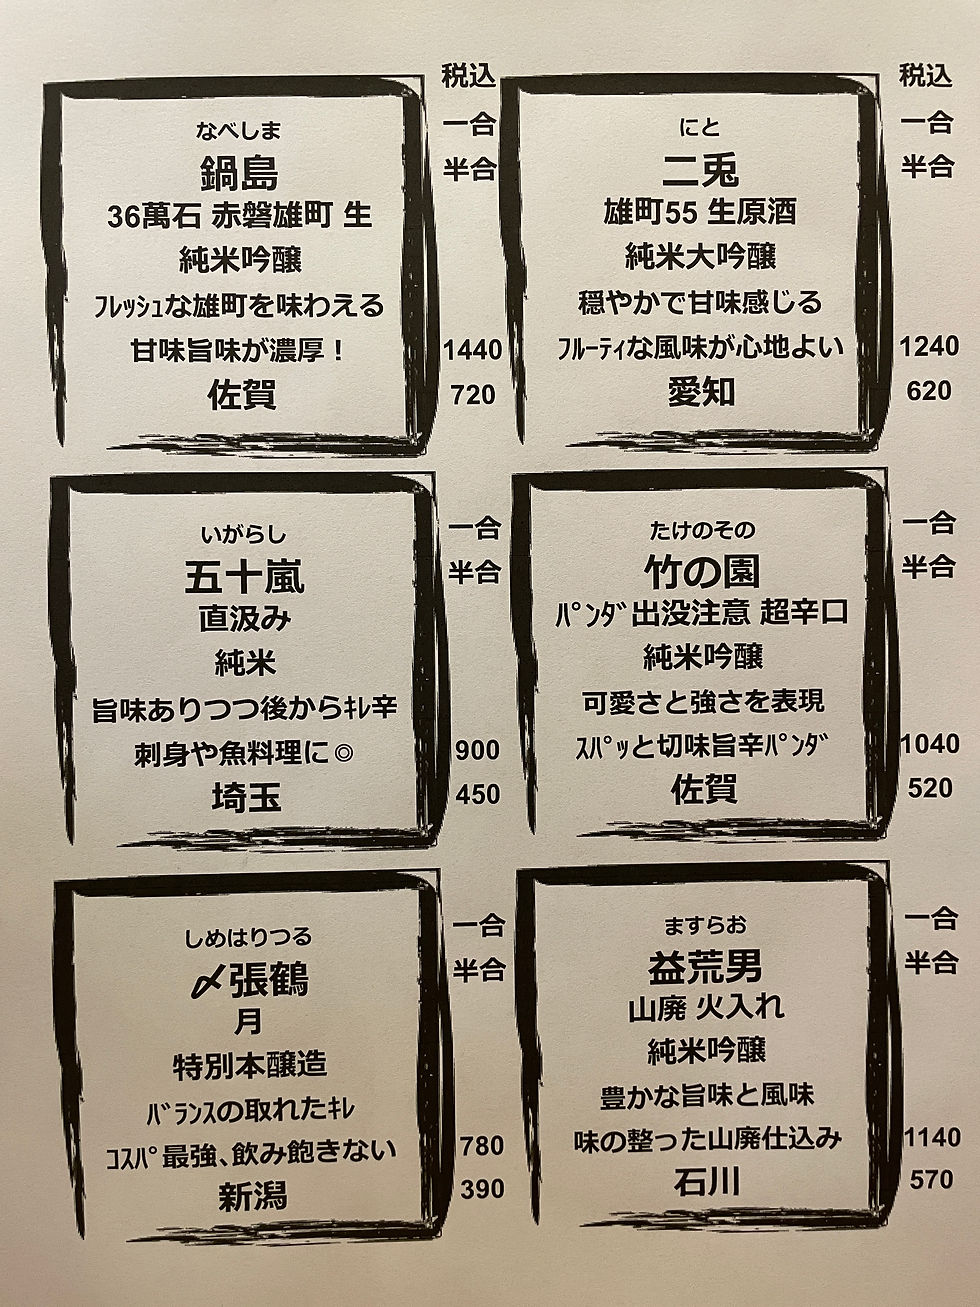 税込
一合
半合
なべしま
鍋島
36萬石 赤磐雄町 生
純米吟醸
ﾌﾚｯｼｭな雄町を味わえる
甘味旨味が濃厚！
佐賀
1440
720
税込
一合
半合
にと
二兎
雄町55 生原酒
純米大吟醸
穏やかで甘味感じる
ﾌﾙｰﾃｨな風味が心地よい
愛知
1240
620
一合
半合
いがらし
五十嵐
直汲み
純米
旨味ありつつ後からｷﾚ辛
刺身や魚料理に◎
埼玉
900
450
一合
半合
たけのその
竹の園
ﾊﾟﾝﾀﾞ出没注意 超辛口
純米吟醸
可愛さと強さを表現
ｽﾊﾟｯと切味旨辛ﾊﾟﾝﾀﾞ
佐賀
1040
520
一合
半合
しめはりつる
〆張鶴
月
特別本醸造
ﾊﾞﾗﾝｽの取れたｷﾚ
ｺｽﾊﾟ最強､飲み飽きない
新潟
780
390
一合
半合
ますらお
益荒男
山廃 火入れ
純米吟醸
豊かな旨味と風味
味の整った山廃仕込み
石川
1140
570